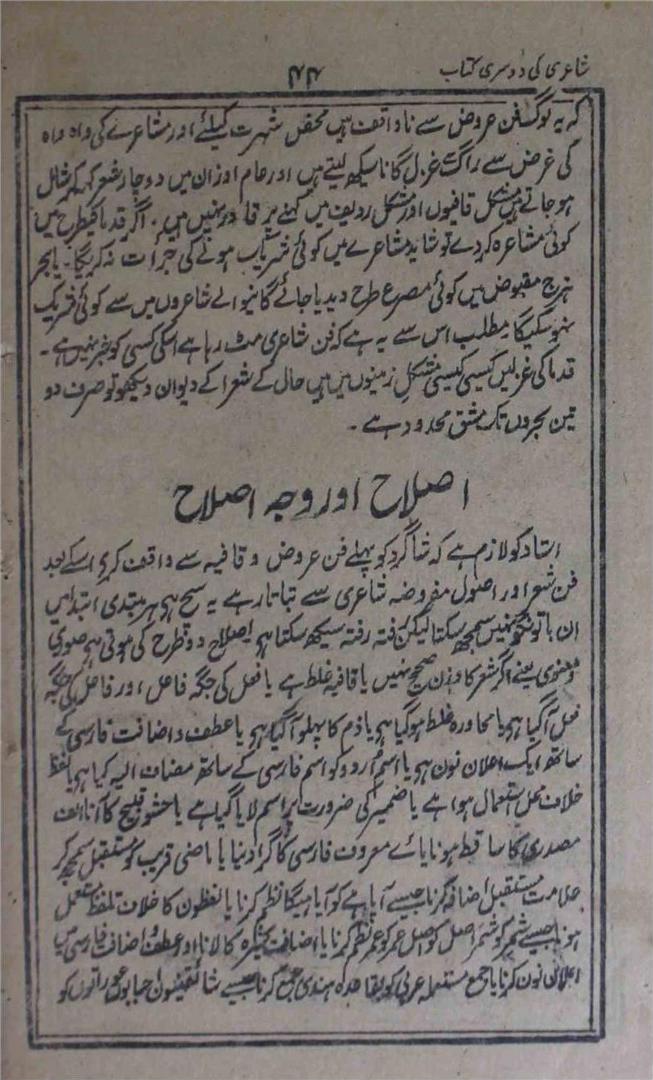 شاعری کی دوسری کتاب
۴۴
کہ یہ لوگ فن عروض سے ناواقف ہیں محض شہرت کیلئے اور مشاعرے کی واہ واہ
کی غرض سے راگ غزل گانا سیکھ لیتے ہیں اور عام اوزان میں دوچار شعر کہہ کر شامل
ہوجاتے ہیں مشکل قافیوں اور مشکل ردیف میں کہنے پر قادر نہیں ہیں۔ اگر قدما کیطرح میں
کوئی مشاعرہ کردے تو شاید مشاعرے میں کوئی شریک ہونے کی جرأت نہ کریگا۔ یا بحر
ہزج مقبوض میں کوئی مصرع طرح دیدیا جائے گا نیوالے شاعروں میں سے کوئی شریک
نہو سکیگا مطلب اس سے یہ ہے کہ فن شاعری مٹ رہا ہے اسکی کسی کو خبر نہیں ہے۔
قدما کی غزلیں کیسی کیسی مشکل زمینوں میں ہیں حال کے شعرا کے دیوان دیکھو تو صرف دو
تین بحروں تک مشق محدود ہے۔
اصلاح اور وجہ اصلاح
استاد کو لازم ہے کہ شاگرد کو پہلے فن عروض و قافیہ سے واقف کری اسکے بعد
فن شعر اور اصول مفروضہ شاعری سے بتاتا رہے یہ سچ ہی ہر مبتدی ابتدا میں
ان باتونکو نہیں سمجھ سکتا لیکن رفتہ رفتہ سیکھ سکتا ہی اصلاح دو طرح کی ہوتی ہی صوری
و معنوی یعنے اگر شعر کا وزن صحیح نہیں یا قافیہ غلط ہے یا فعل کی جگہ فاعل اور فاعل کی جگہ
فعل آگیا ہی یا محاورہ غلط ہوگیا ہی یا ذم کا پہلو آگیا ہی یا عطف و اضافت فارسی کے
ساتھ ایک اعلان نون ہی یا اسم اردو کو اسم فارسی کے ساتھ مضاف الیہ کیا ہی یا لفظ
خلاف محل استعمال ہوا ہے یا ضمیر کی ضرورت پر اسم لایا گیا ہے یا حشو قبیح کا آنا الف
مصدری کا ساقط ہونا یائے معروف فارسی کا گرا دنیا یا ماضی قریب کو مستقبل سمجھ کر
علامت مستقبل اضافہ کرنا جیسے آیا ہے کو آیا ہیگا نظم کرنا یا لفظوں کا خلاف تلفظ مستعمل
ہونا جیسے شمر کو شمر اصل کو اصل عمر کو عمر نظم کرنا یا اضافت کا لانا اور عطف و اضافت فارسی میں
اعلان نون کرنا یا جمع مستعملہ عربی کو بقاعدہ ہندی جمع کرنا جیسے شائقینوں